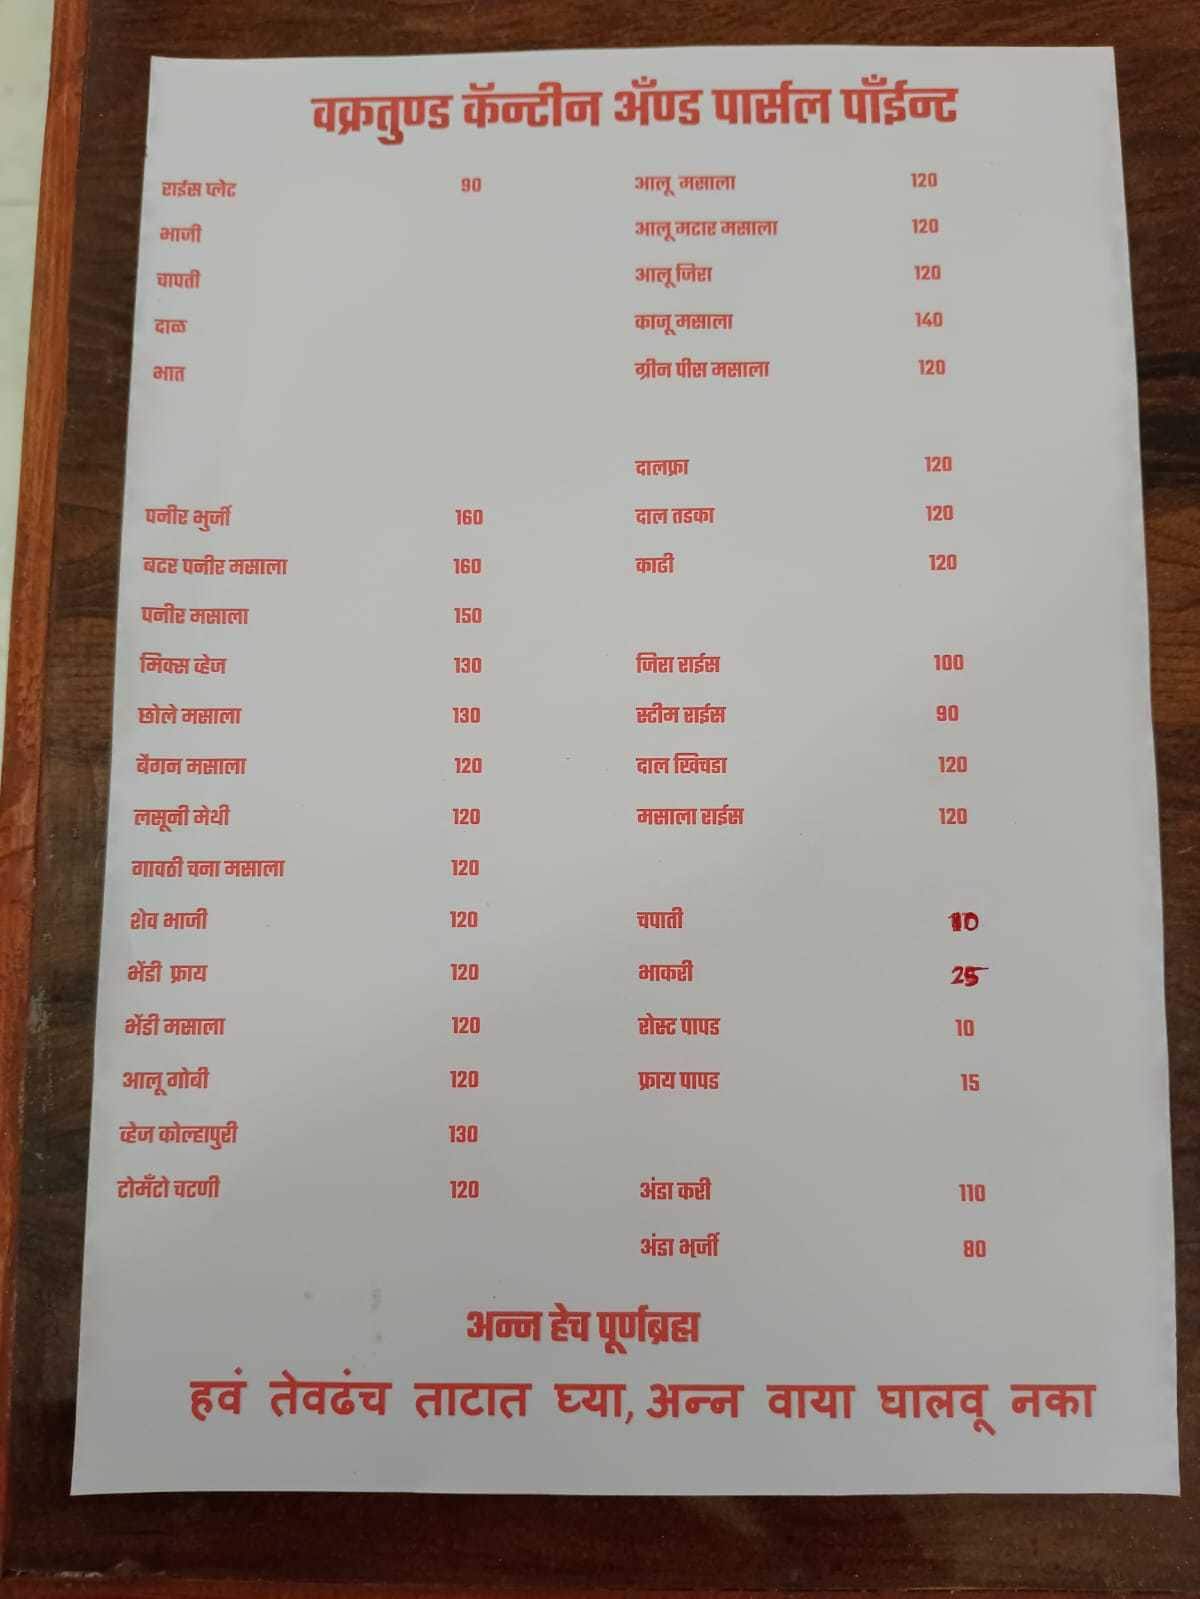 वक्रतुण्ड कॅन्टीन अँण्ड पार्सल पॉंईन्ट
राईस प्लेट 90
भाजी
चापती
दाळ
भात
पनीर भुर्जी 160
बटर पनीर मसाला 160
पनीर मसाला 150
मिक्स व्हेज 130
छोले मसाला 130
बैगन मसाला 120
लसूनी मेथी 120
गावठी चना मसाला 120
शेव भाजी 120
भेंडी फ्राय 120
भेंडी मसाला 120
आलू गोबी 120
व्हेज कोल्हापुरी 130
टोमँटो चटणी 120
आलू मसाला 120
आलू मटार मसाला 120
आलू जिरा 120
काजू मसाला 140
ग्रीन पीस मसाला 120
दालफ्रा 120
दाल तडका 120
काढी 120
जिरा राईस 100
स्टीम राईस 90
दाल खिचडा 120
मसाला राईस 120
चपाती 10
भाकरी 25
रोस्ट पापड 10
फ्राय पापड 15
अंडा करी 110
अंडा भर्जी 80
अन्न हेच पूर्णब्रह्म
हवं तेवढंच ताटात घ्या, अन्न वाया घालवू नका